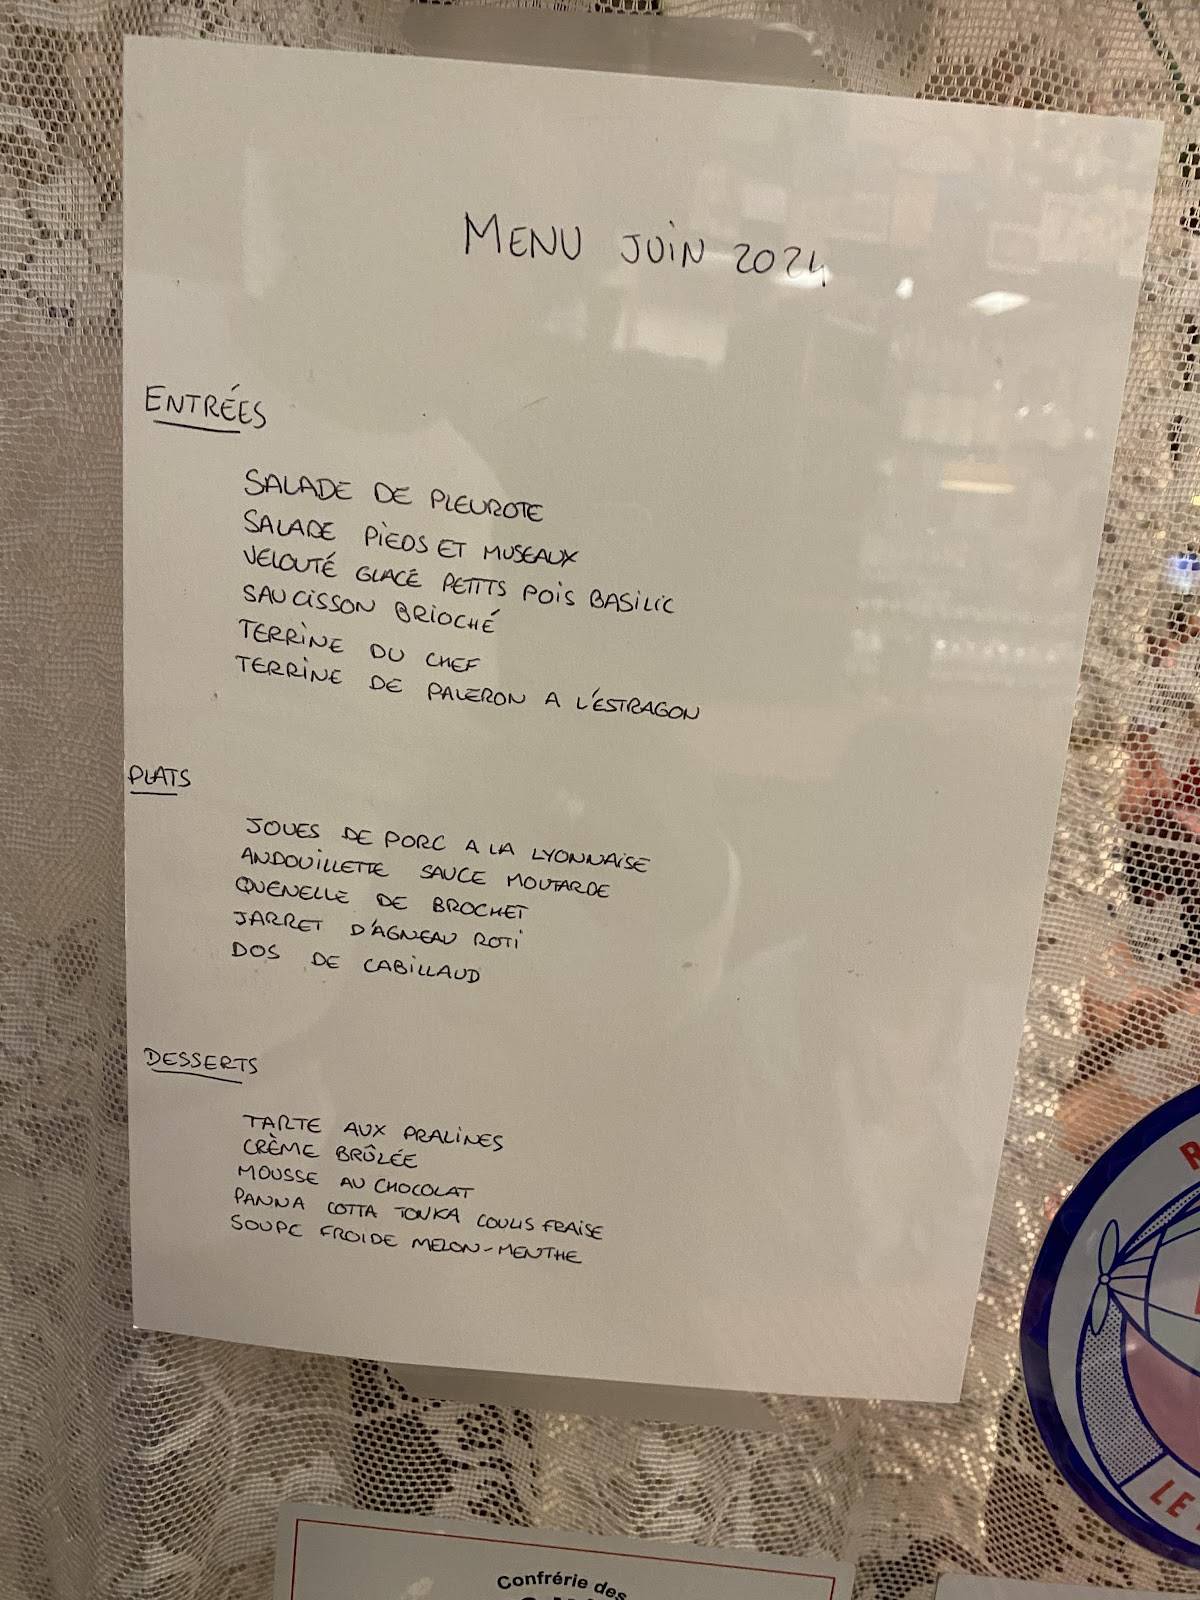 MENU JUIN 2024
ENTRÉES
SALADE DE PLEUROTE
SALADE PIEDS ET MUSEAUX
VELOUTÉ GLACÉ PETITS POIS BASILIC
SAUCISSON BRIOCHÉ
TERRINE DU CHEF
TERRINE DE PALERON A L'ESTRAGON
PLATS
JOUES DE PORC A LA LYONNAISE
ANDOUILLETTE SAUCE MOUTARDE
QUENELLE DE BROCHET
JARRET D'AGNEAU ROTI
DOS DE CABILLAUD
DESSERTS
TARTE AUX PRALINES
CRÈME BRÛLÉE
MOUSSE AU CHOCOLAT
PANNA COTTA TONKA COULIS FRAISE
SOUPE FROIDE MELON-MENTHE
LE
Confrérie des